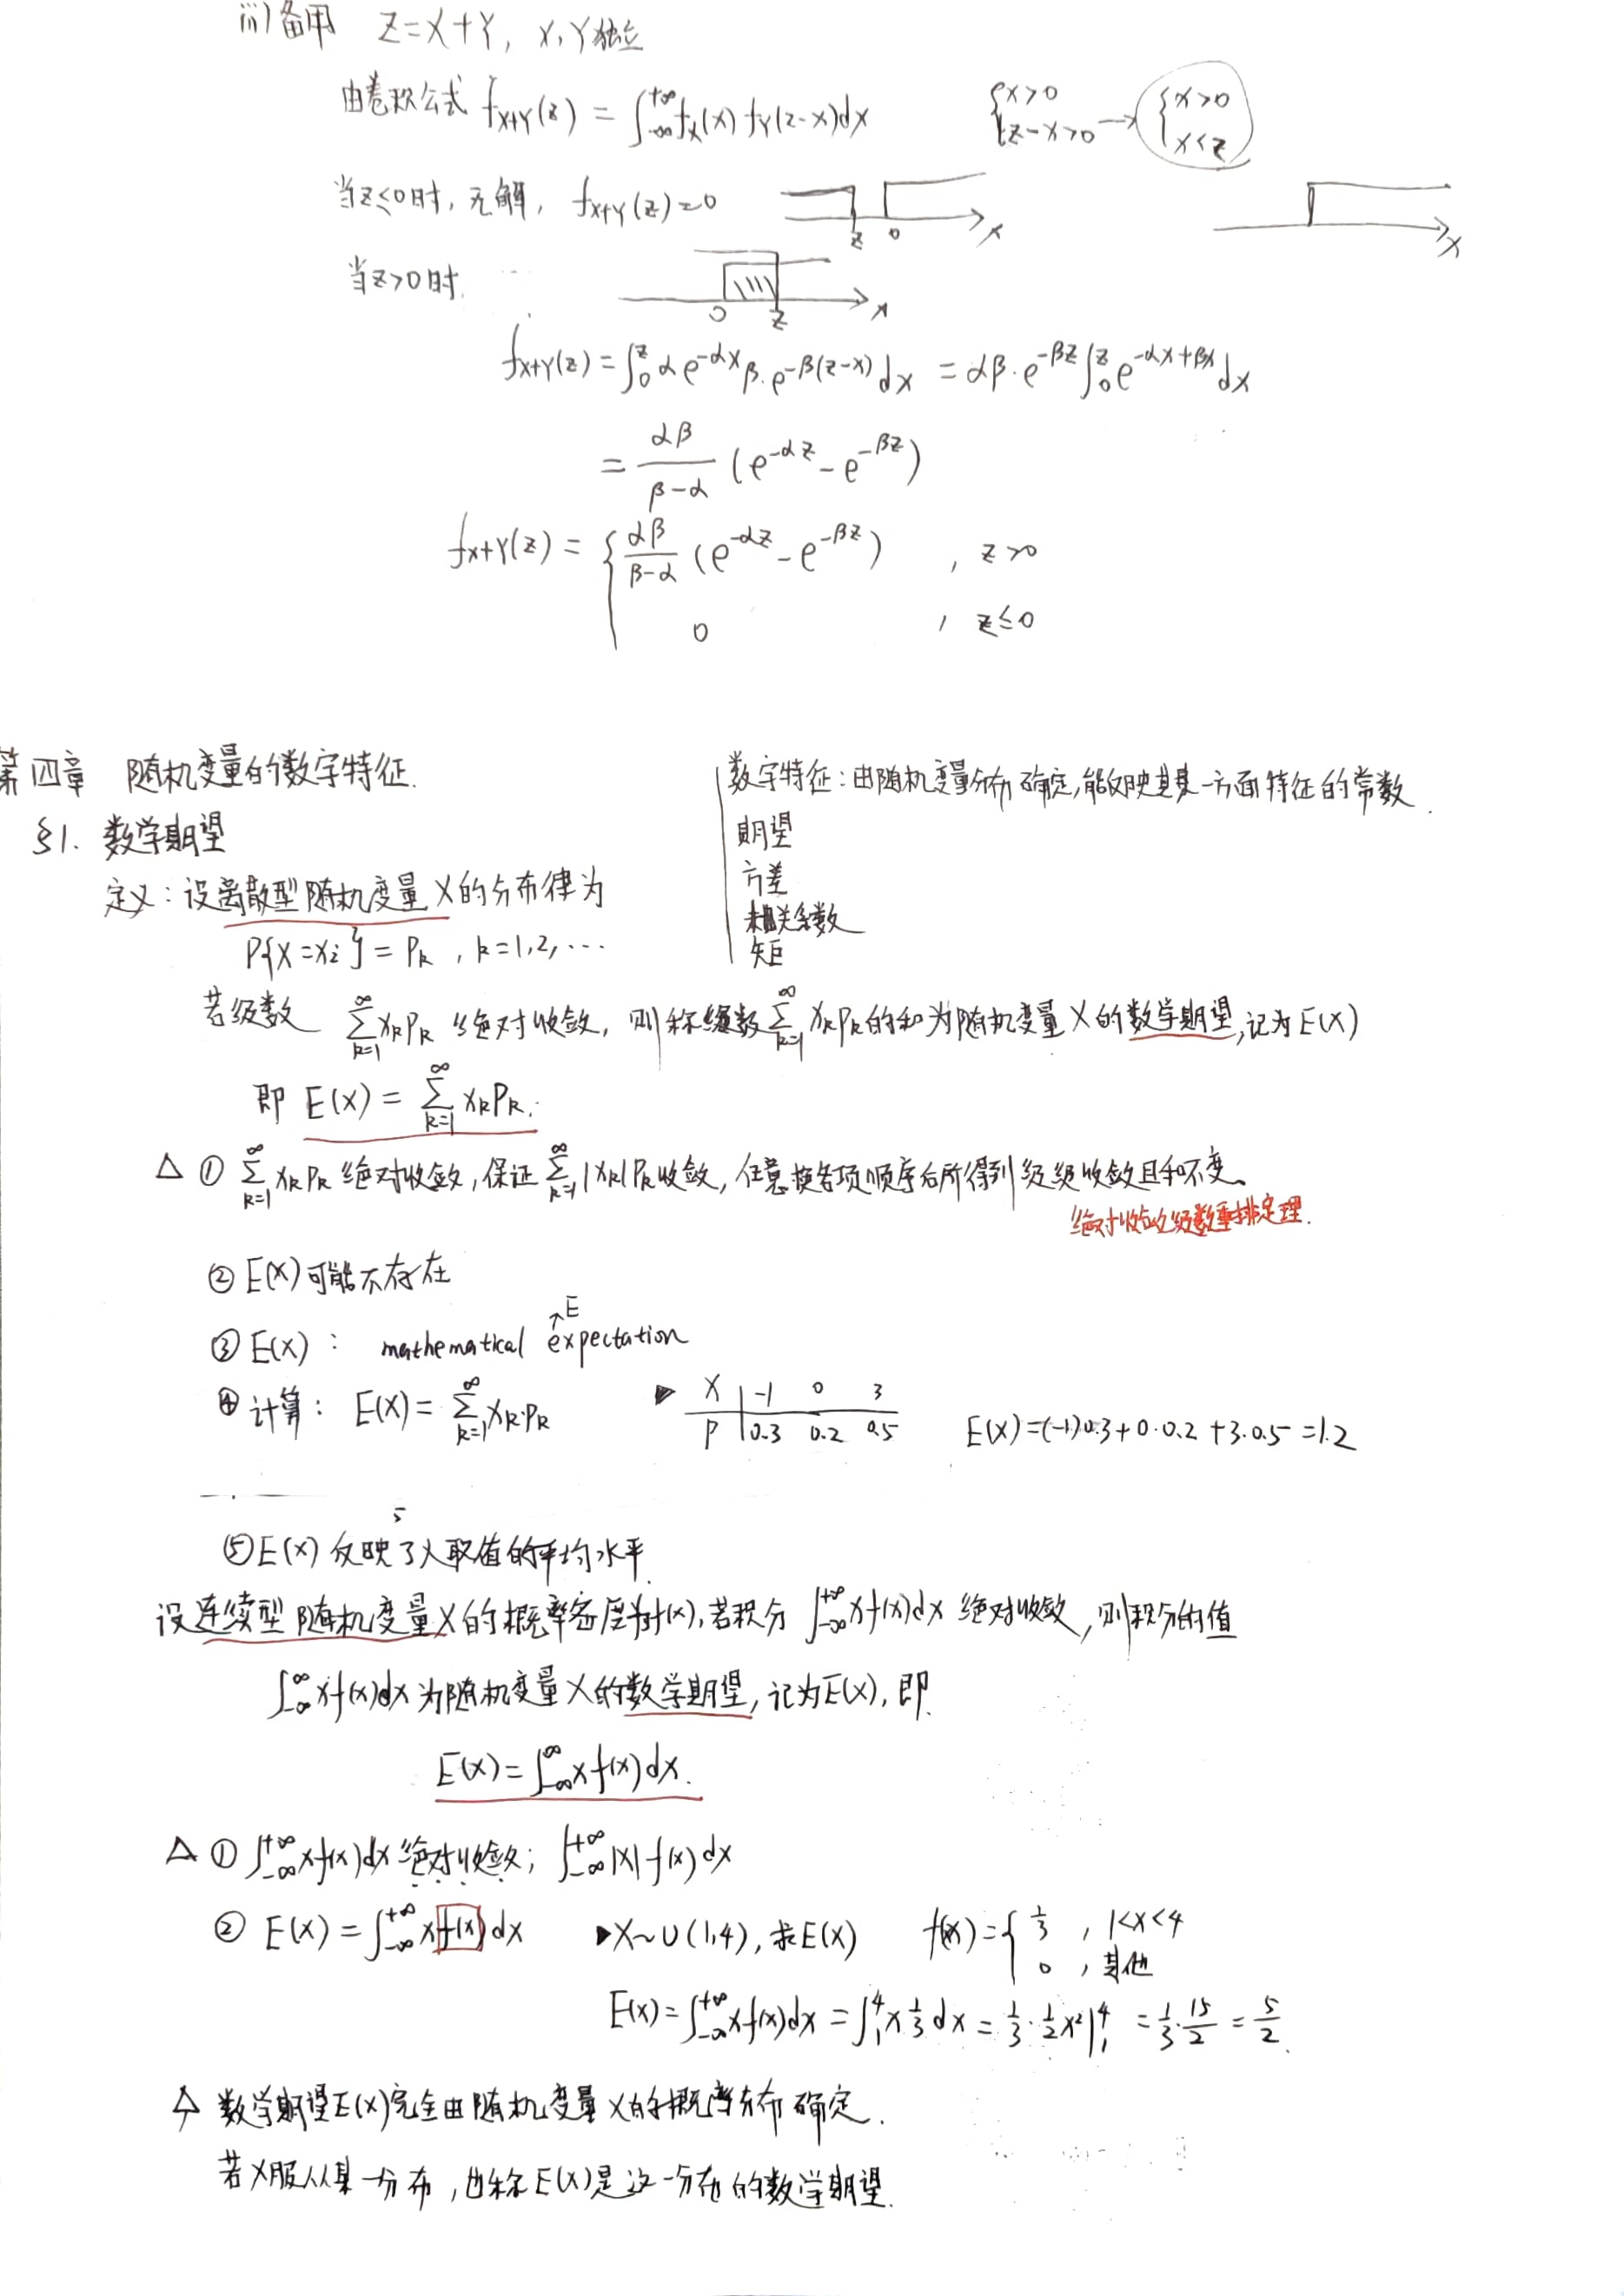 iii) 备用 Z=X+Y, X,Y独立
由卷积公式 f_{X+Y}(z) = ∫_{-∞}^{+∞} f_X(x) f_Y(z-x)dx { x>0 z-x>0 → { x>0 x<z
当z≤0时, 无解, f_{X+Y}(z)=0 z 0 x x
当z>0时. 0 z x
f_{X+Y}(z) = ∫_0^z αe^{-αx} β·e^{-β(z-x)} dx = αβ·e^{-βz} ∫_0^z e^{-αx+βx} dx
= αβ/(β-α) (e^{-αz} - e^{-βz})
f_{X+Y}(z) = { αβ/(β-α) (e^{-αz} - e^{-βz}) , z>0
0 , z≤0
第四章 随机变量的数字特征.
数字特征:由随机变量分布确定,能反映其某一方面特征的常数.
期望
方差
相关系数
矩
§1. 数学期望
定义:设离散型随机变量X的分布律为
P{X=x_i} = P_k , k=1,2,…
若级数 ∑_{k=1}^∞ x_kP_k 绝对收敛, 则称级数 ∑_{k=1}^∞ x_kP_k的和为随机变量X的数学期望,记为E(X)
即 E(X) = ∑_{k=1}^∞ x_kP_k.
△ ① ∑_{k=1}^∞ x_kP_k 绝对收敛,保证 ∑_{k=1}^∞ |x_k|P_k收敛, 任意换各项顺序后所得到级级收敛且和不变。
绝对收敛级数重排定理.
② E(X)可能不存在
↑E
③ E(X) : mathematical expectation
④ 计算: E(X) = ∑_{k=1}^∞ x_k·P_k ▶ X | -1 0 3
P | 0.3 0.2 0.5 E(X)=(-1)0.3+0·0.2+3·0.5=1.2
⑤ E(X) 反映了X取值的平均水平.
设连续型随机变量X的概率密度为f(x),若积分 ∫_{-∞}^{+∞} xf(x)dx 绝对收敛, 则积分的值
∫_{-∞}^{∞} xf(x)dx 为随机变量X的数学期望, 记为E(X), 即.
E(X) = ∫_{-∞}^{∞} xf(x)dx.
△ ① ∫_{-∞}^{+∞} xf(x)dx 绝对收敛; ∫_{-∞}^{+∞} |x|f(x)dx
② E(X) = ∫_{-∞}^{+∞} xf(x)dx ▶X~U(1,4), 求E(X) f(x)= { 1/3 , 1<x<4
0 , 其他
E(X) = ∫_{-∞}^{+∞} xf(x)dx = ∫_1^4 x 1/3 dx = 1/3·1/2x²|_1^4 = 1/3·15/2 = 5/2.
△ 数学期望E(X)完全由随机变量X的概率分布确定.
若X服从某一分布, 也称E(X)是这一分布的数学期望.